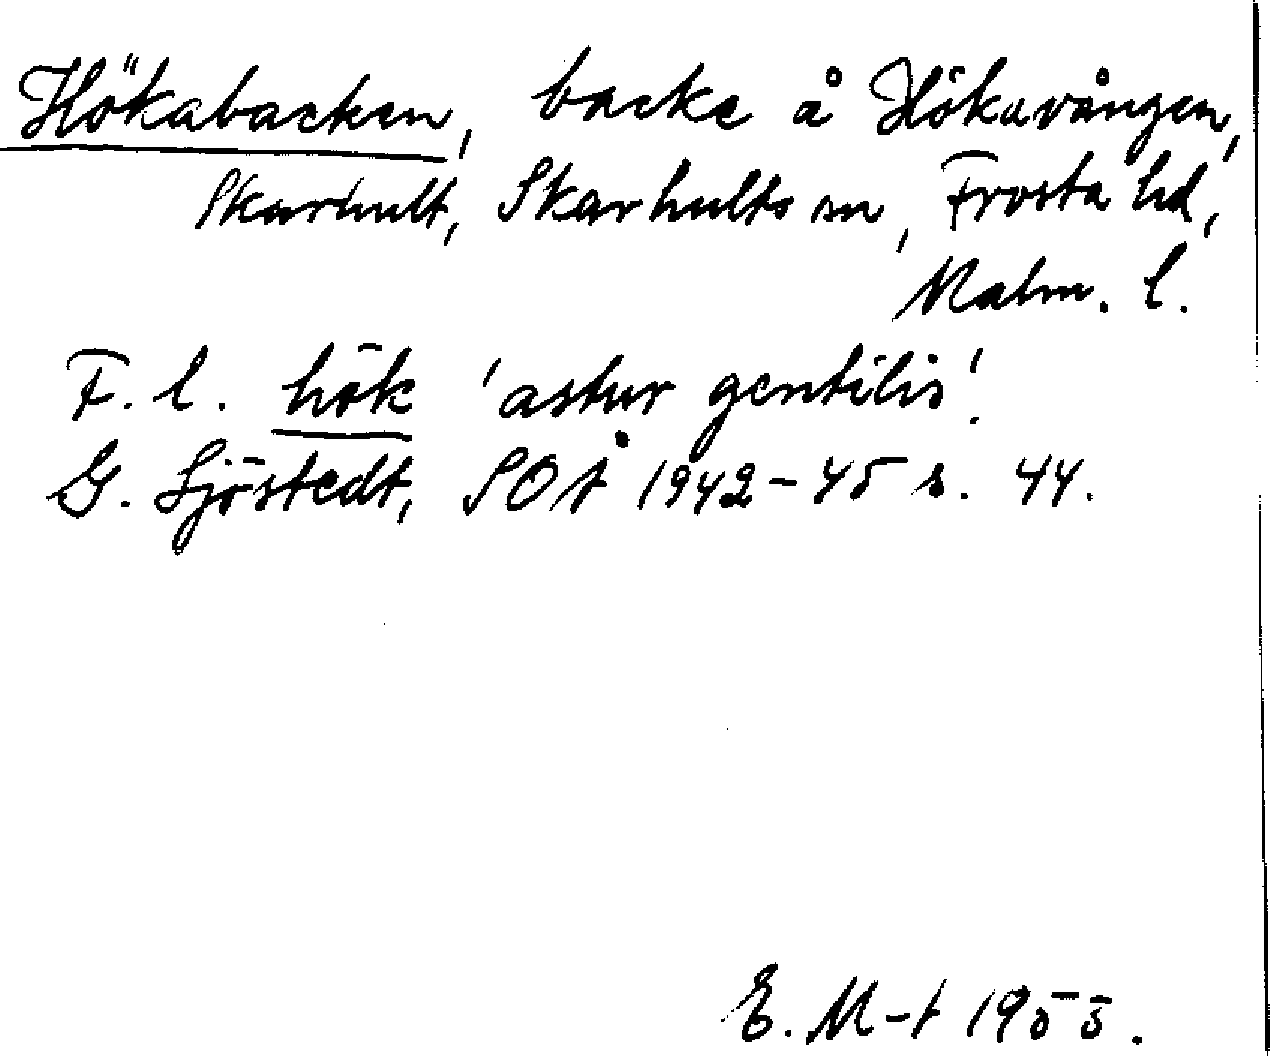 Hökabacken, backe å Hökavången,
Skarhult, Skarhults sn, Frosta hd,
Malm. l.
F. l. hök 'astur gentilis'.
G. Sjöstedt, SOÅ 1942-45 s. 44.
E. M-t 1955.